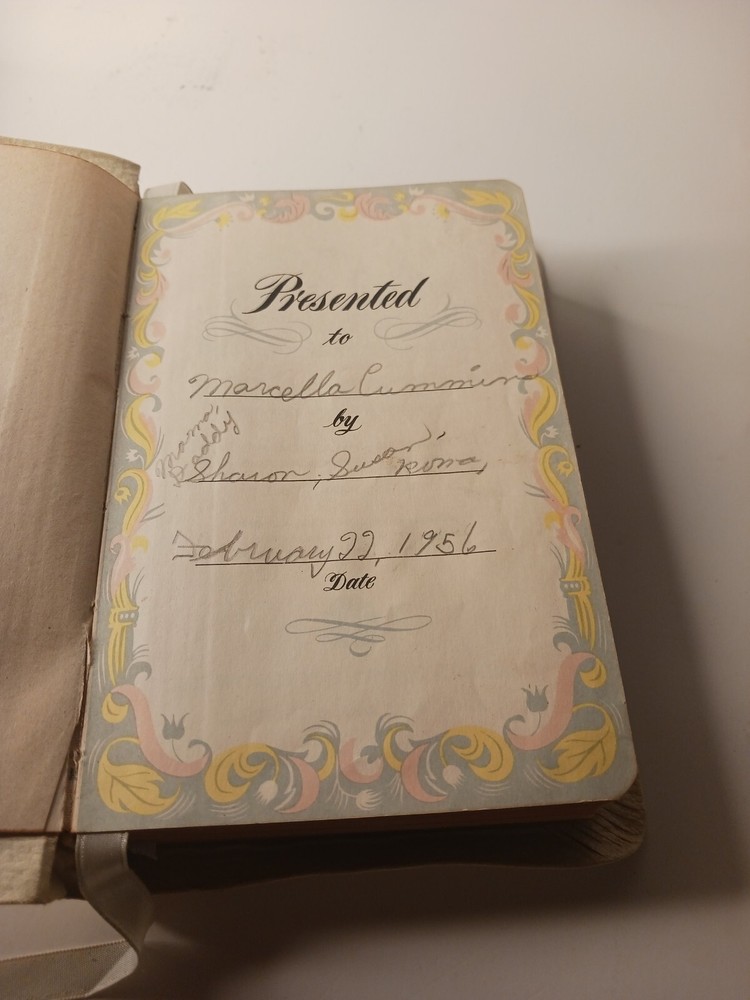 Presented
to
Marcella Cummins
by
Mama,
Daddy
Sharon, Susan,
Rona,
February 22, 1956
Date